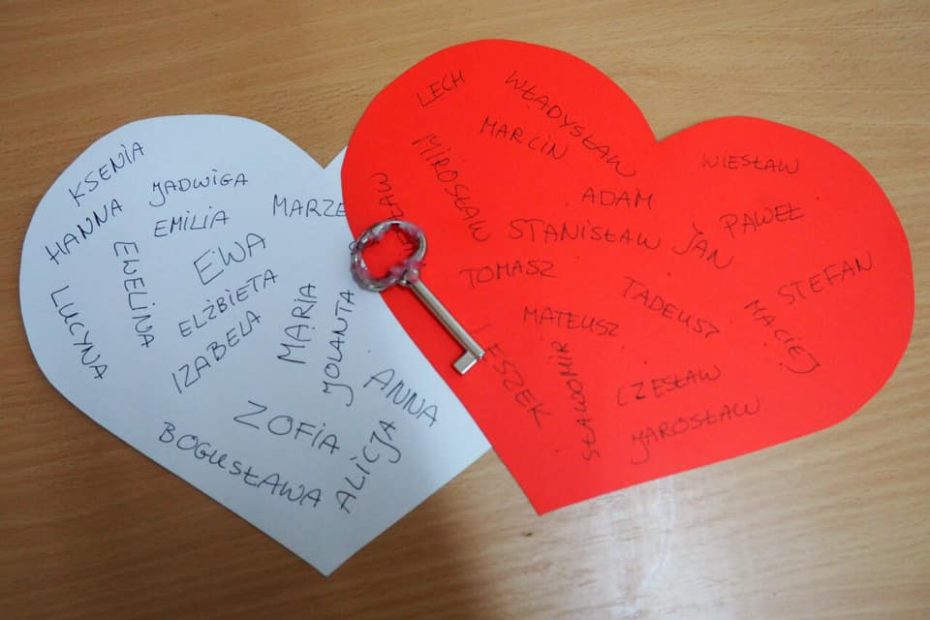 KSENIA
JADWIGA
HANNA
EMILIA
MARZE
EWELINA
EWA
ELŻBIETA
LUCYNA
IZABELA
MARIA
JOLANTA
ANNA
ZOFIA
ALICJA
BOGUSŁAWA
LECH
WŁADYSŁAW
MARCIN
WIESŁAW
MIROSŁAW
ADAM
PAWEŁ
STANISŁAW
JAN
TOMASZ
STEFAN
TADEUSZ
MATEUSZ
MACIEJ
LESZEK
SŁAWOMIR
CZESŁAW
JAROSŁAW